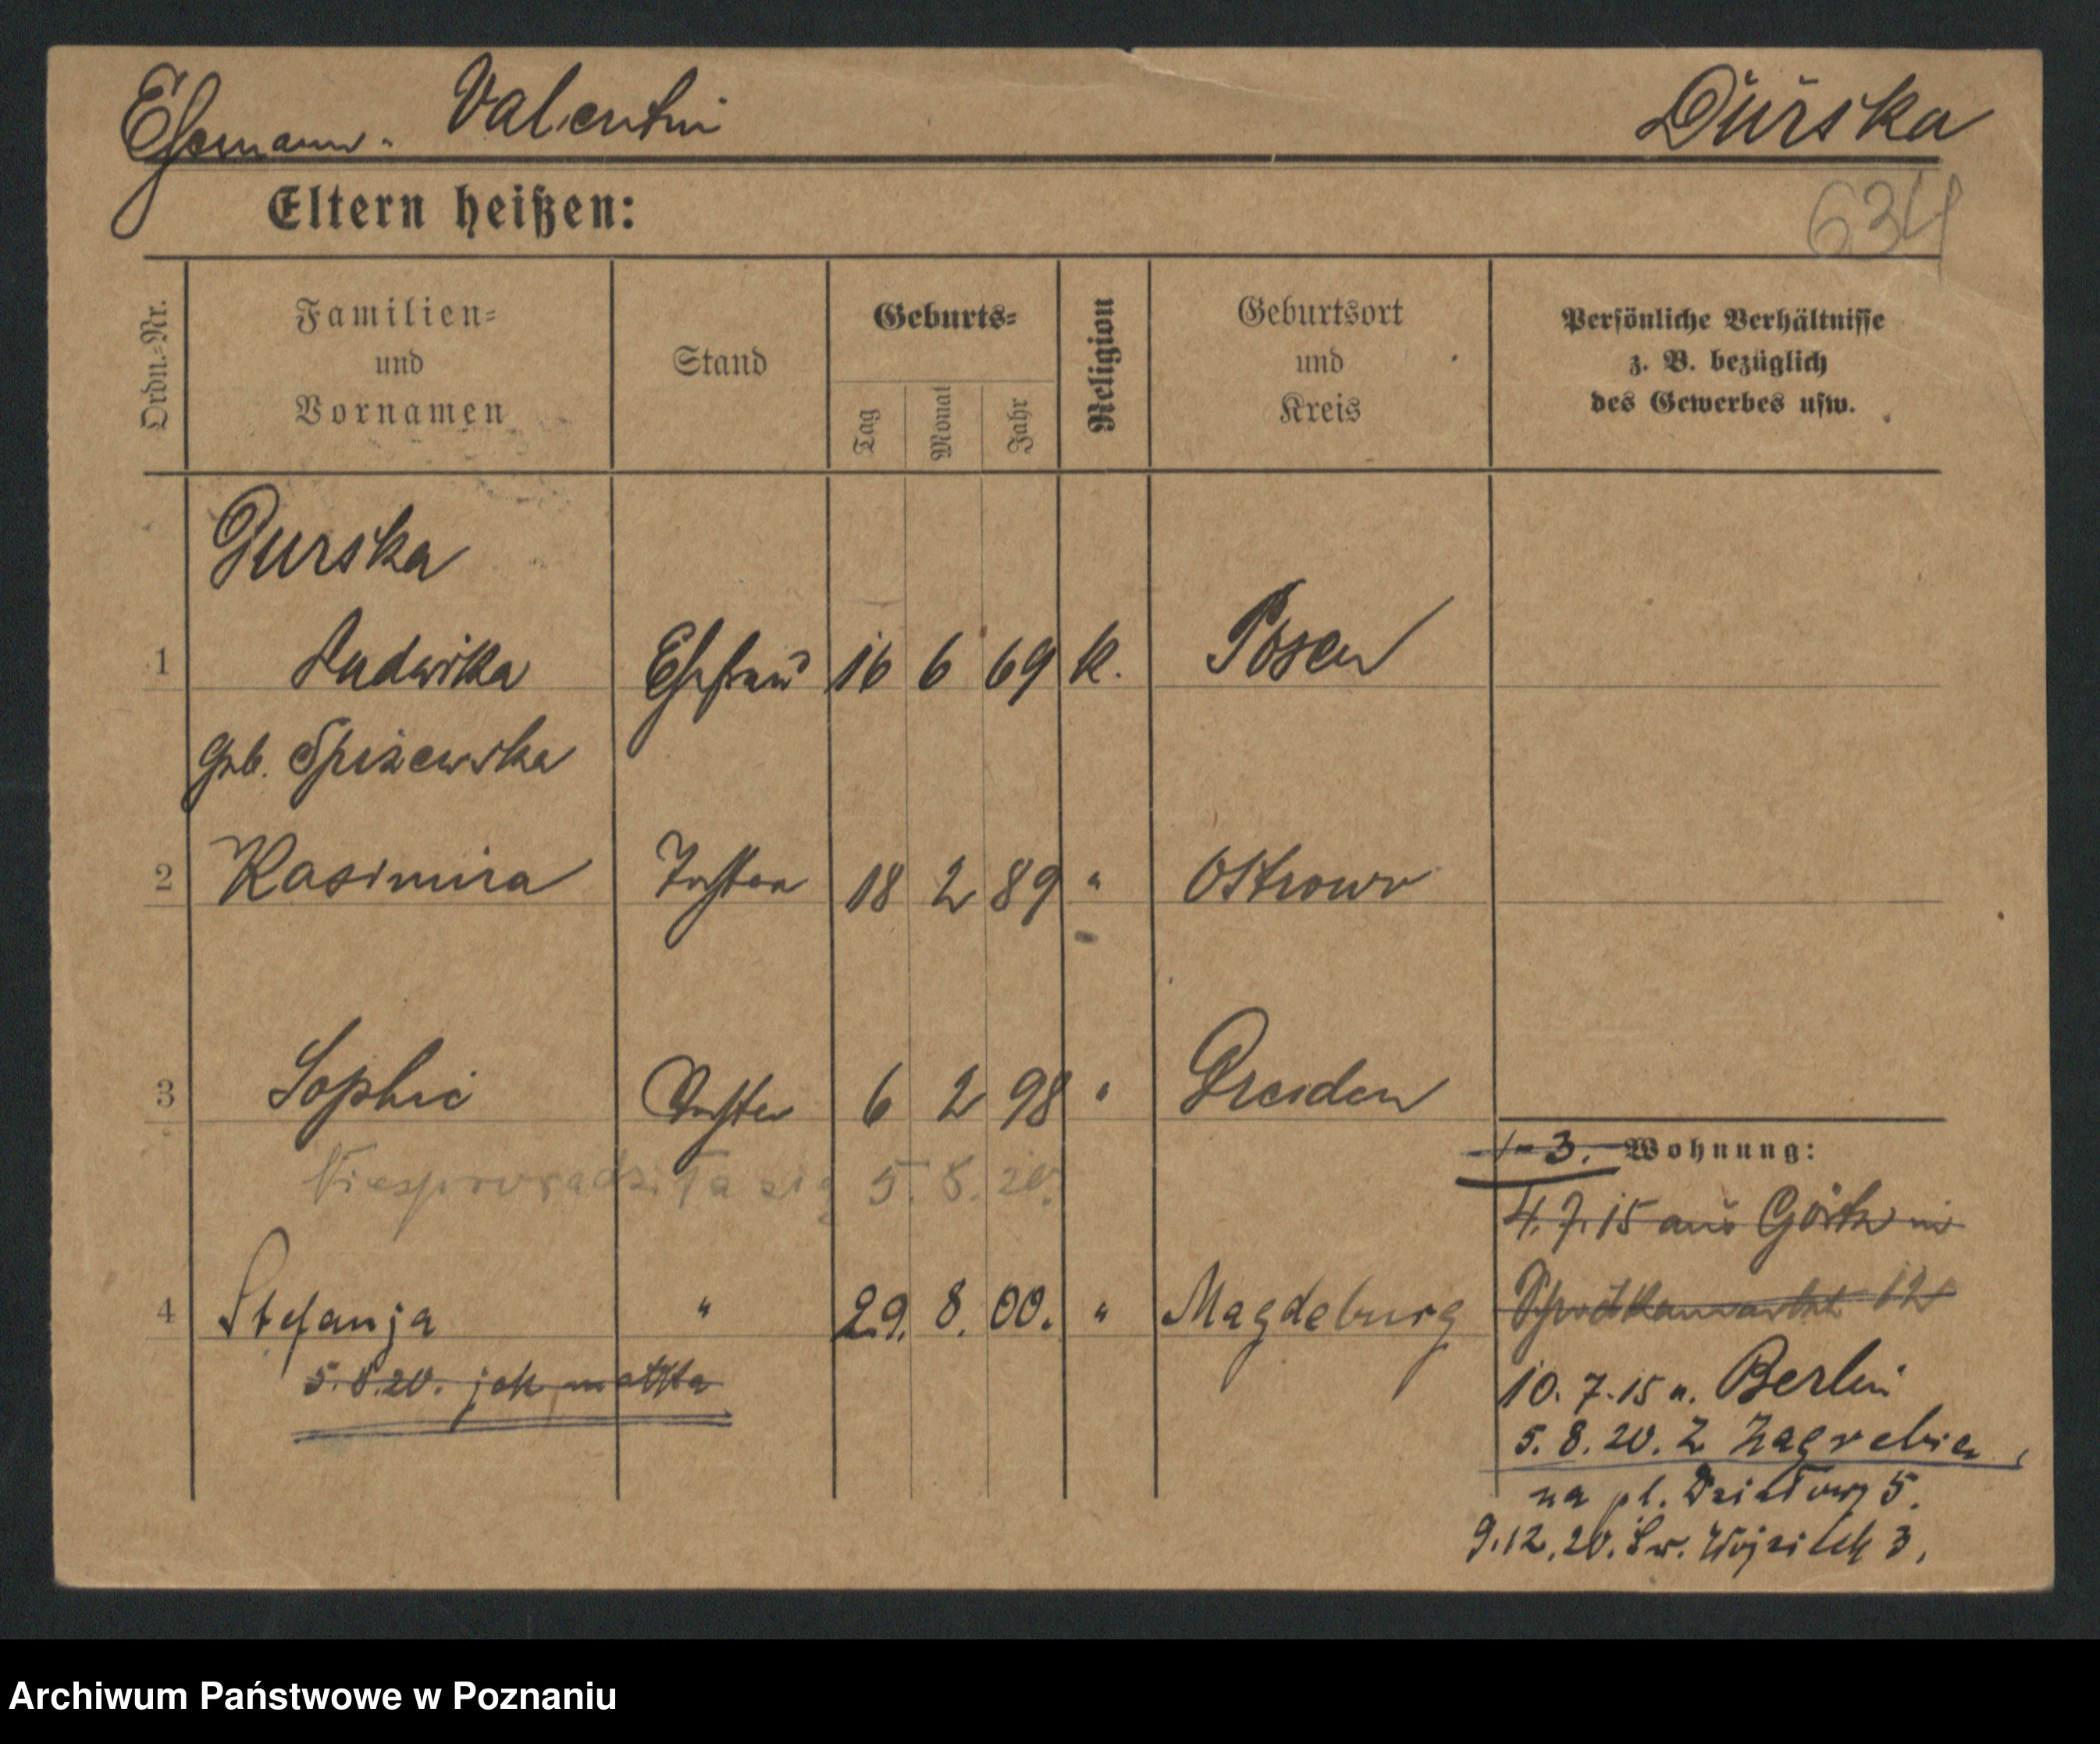 Ehemann. Valentin Durska
Eltern heißen:
634
Ordn.=Nr. Familien= und Vornamen Stand Geburts= Tag Monat Jahr Religion Geburtsort und Kreis Persönliche Verhältnisse z. B. bezüglich des Gewerbes usw.
Durska
1 Ludwika Ehefrau 16 6 69 k. Posen
geb. Spiżewska
2 Kasimira Tochter 18 2 89 " Ostrowo
3 Sophie Tochter 6 2 98 " Dresden
Niesprowadziła się 5.8.20.
4 Stefanja " 29. 8. 00. " Magdeburg
5.8.20. jak matka
1-3. Wohnung:
4.7.15 aus
12
10.7.15 n. Berlin
5.8.20. z Zagrebia
na pl. Działowy 5.
9.12.20. Św. Wojciech 3.
Archiwum Państwowe w Poznaniu